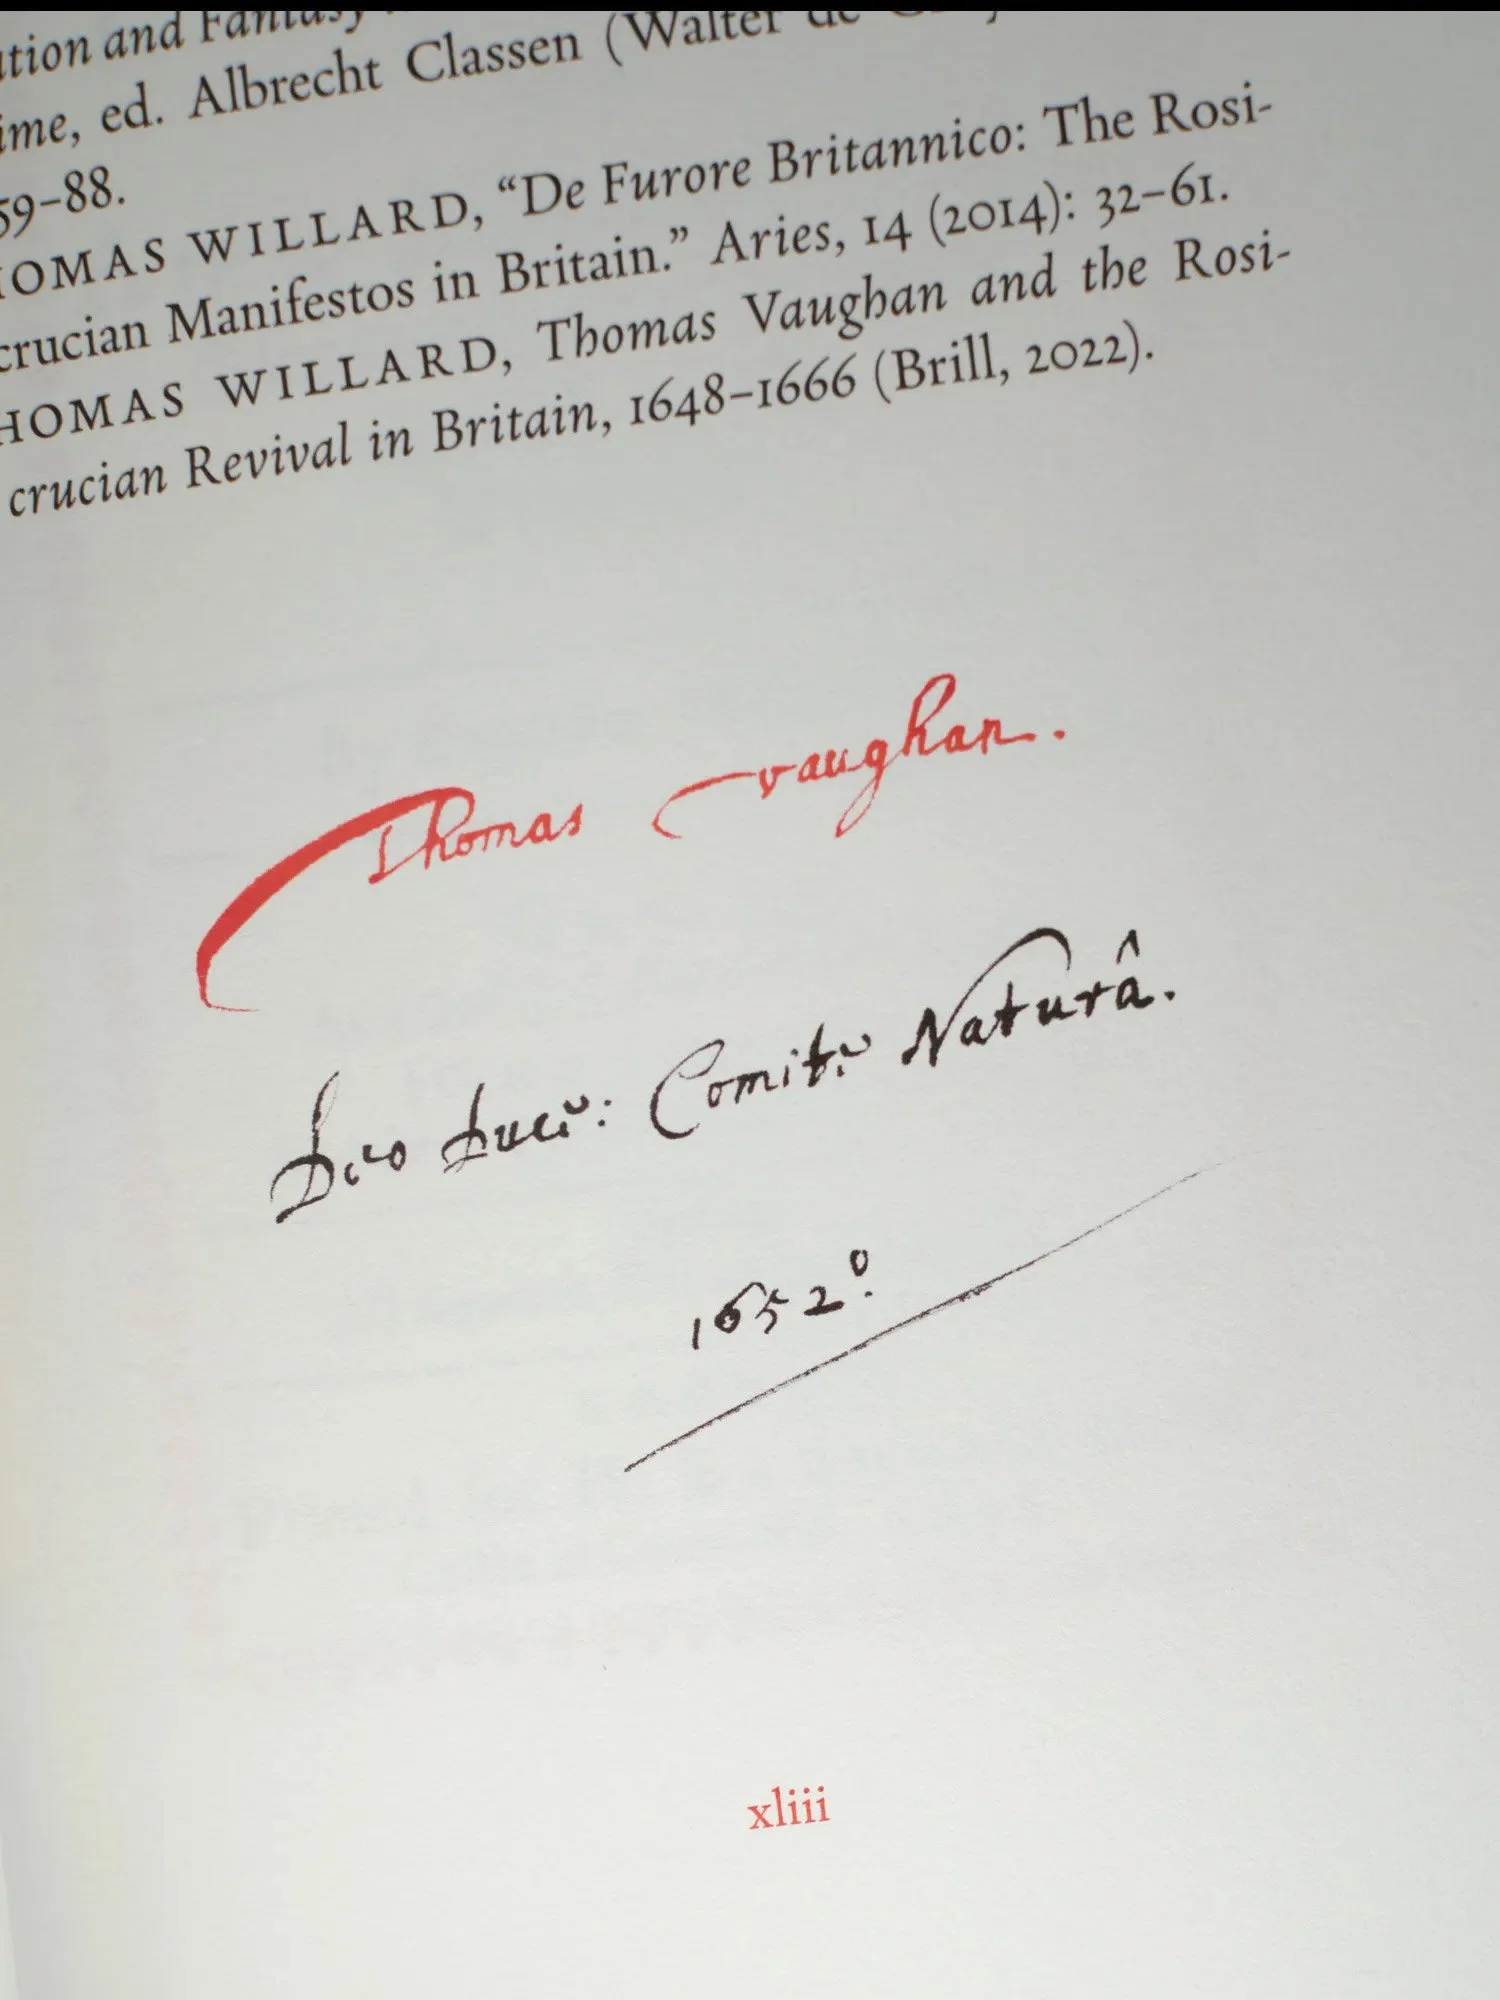 ution and Fantasy
ime, ed. Albrecht Classen (Walter de
59–88.
HOMAS WILLARD, “De Furore Britannico: The Rosi-
crucian Manifestos in Britain.” Aries, 14 (2014): 32–61.
HOMAS WILLARD, Thomas Vaughan and the Rosi-
crucian Revival in Britain, 1648–1666 (Brill, 2022).
Thomas Vaughan.
Deo Duce: Comite Naturâ.
1652º.
xliii